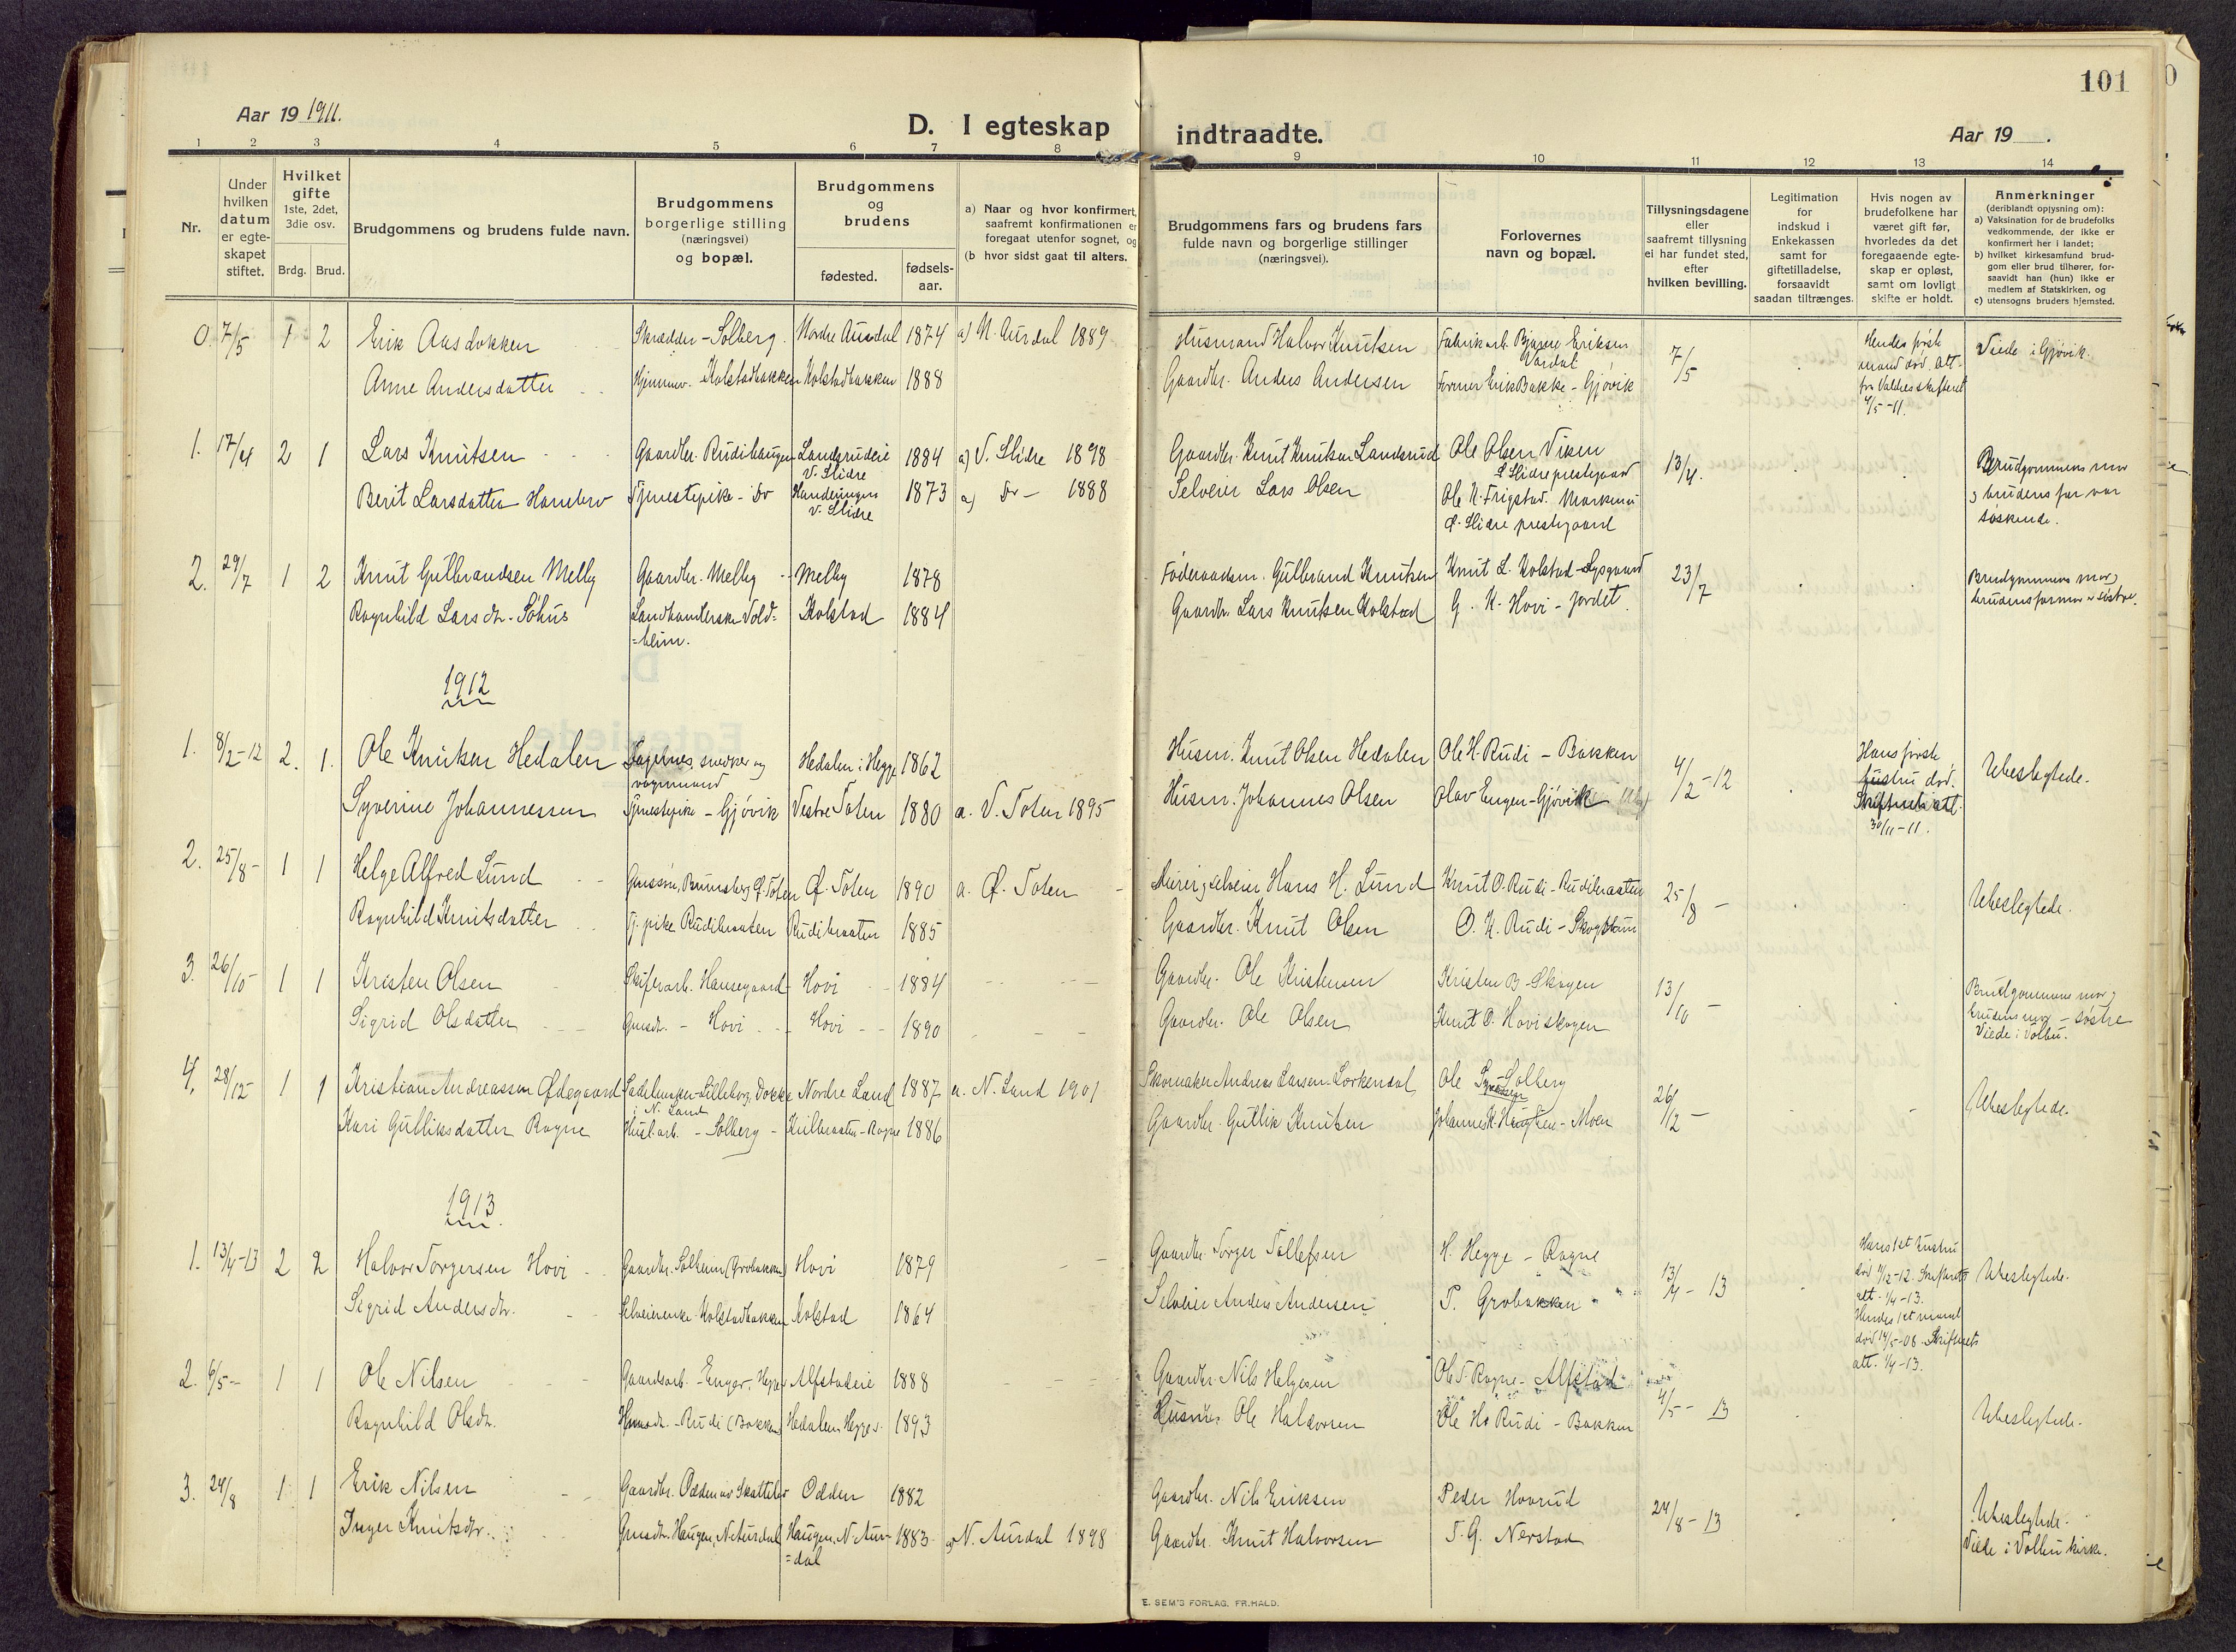 101
Aar 19 1911.
D. I egteskap indtraadte.
Aar 19 .
1 2 3 4 5 6 7 8 9 10 11 12 13 14
Nr.
Under hvilken datum er egteskapet stiftet.
Hvilket gifte 1ste, 2det, 3die osv.
Brdg. Brud.
Brudgommens og brudens fulde navn.
Brudgommens borgerlige stilling (næringsvei) og bopæl.
Brudgommens og brudens
fødested. fødsels-aar.
a) Naar og hvor konfirmert, saafremt konfirmationen er foregaat utenfor sognet, og
(b hvor sidst gaat til alters.
Brudgommens fars og brudens fars fulde navn og borgerlige stillinger (næringsvei).
Forlovernes navn og bopæl.
Tillysningsdagene eller saafremt tillysning ei har fundet sted, efter hvilken bevilling.
Legitimation for indskud i Enkekassen samt for giftetilladelse, forsaavidt saadan tiltrænges.
Hvis nogen av brudefolkene har været gift før, hvorledes da det foregaaende egteskap er opløst, samt om lovligt skifte er holdt.
Anmerkninger (deriblandt opjysning om):
a) Vaksination for de brudefolks vedkommende, der ikke er konfirmert her i landet;
b) hvilket kirkesamfund brudgom eller brud tilhører, forsaavidt han (hun) ikke er medlem af Statskirken, og
c) utensogns bruders hjemsted.
0. 7/5 1 2 Erik Aasdokken Skrædder - Solberg Nordre Aurdal 1874 a) N. Aurdal 1889 Husmand Halvor Knutsen Fabrikarb. Bjarne Eriksen Vardal 7/5 Hendes første mand død. Att. fra Valdres skifteret 4/5-11. Viede i Gjøvik.
Anne Andersdatter Kolstadbakken Kolstadbakken 1888 Gaardbr. Anders Andersen Former Erik Bakke - Gjøvik
1. 17/4 2 1 Lars Knutsen Gaardbr. Rudihaugen Landsrudeie V. Slidre 1884 a) V. Slidre 1898 Gaardbr. Knut Knutsen Landsrud Ole Olsen Viken Ø. Slidre prestegaard 13/4. Brudgommens mor og brudens far var søskende.
Berit Larsdatter Tjenestepike - Do V. Slidre 1873 a) Do - 1888 Selveier Lars Olsen Ole N. Frigstad. Ø. Slidre prestegaard
2. 29/7 1 2 Knut Gulbrandsen Melby Gaardbr. Melby Melby 1878 Føderaadsm. Gulbrand Knutsen Knut L. Kolstad - 23/7 Brudgommens mor og brudens farmor søstre.
Ragnhild Larsdtr. Sohus Landhandlerske Vold=heim. Kolstad 1884 Gaardbr. Lars Knutsen Kolstad G. K. Hovi - Jordet.
1912
1. 8/2-12 2. 1. Ole Knutsen Hedalen Fagelnes, snedker og vognmand Hedalen i Hegge 1862 Husm. Knut Olsen Hedalen Ole H. Rudi - Bakken 4/2-12 Hans første hustru død. Skifteret att. 30/11-11. Ubeslegtede.
Syverine Johannessen Tjenestepike - Gjøvik Vestre Toten 1880 a. V. Toten 1895 Husm. Johannes Olsen Olav Engen - Gjøvik
2. 25/8- 1 1 Helge Alfred Lund Ø. Toten Ø. Toten 1890 a. Ø. Toten Selveier Hans H. Lund Knut O. Rudi - Rudibraaten 25/8 - Ubeslegtede.
Ragnhild Knutsdatter Tj. pike Rudibraaten Rudibraaten 1885 Gaardbr. Knut Olsen O. K. Rudi - Skogstun
3. 26/10 1 1 Kristen Olsen Skiferarb. Hansegaard Hovi 1884 Gaardbr. Ole Kristensen Kristen B. Skogen 13/10 - Brudgommens mor og brudens mor - søstre Viede i Volbu.
Sigrid Olsdatter Gmsdtr. - Hovi Hovi 1890 Gaardbr. Ole Olsen Knut O. Hoviskogen
4. 28/12 1 1 Kristian Andreassen Ødegaard Sadelmaker - Lilleborg, Dokka i N. Land Nordre Land 1887 a. N. Land 1901 Skomaker Andreas Larsen Lorkendal Ole Solberg 26/12 - Ubeslegtede.
Kari Gulliksdatter Rogne Husl. arb. - Solberg - Kulbraaten - Rogne 1886 Gaardbr. Gullik Knutsen Johannes K. Haugen - Moen
1913
1. 13/4-13 2 2 Halvor Torgersen Hovi Gaardbr. Solheim (Grobakken) Hovi 1879 Gaardbr. Torger Tollefsen H. Hegge - Rogne 13/4 - 13 Hans 1st hustru død 4/12-12. Skifterets att. 1/4-13. Ubeslegtede.
Sigrid Andersdtr. Selveierenke Kolstadbakken Kolstad 1864 Selveier Anders Andersen T. Grobakken Hendes 1st mand død 14/5-08. Skifterets att. 1/4-13.
2. 6/5- 1 1 Ole Nilsen Gaardsarb. - Enger, Hegge Alfstadeie 1888 Gaardbr. Nils Helgesen Ole T. Rogne - Alfstad 4/5 - 13 Ubeslegtede.
Ragnhild Olsdtr. Husmdtr. - Rudi (Bakken) Hedalen Hegges. 1893 Husm. Ole Halvorsen Ole H. Rudi - Bakken
3. 24/8 1 1 Erik Nilsen Gaardbr. Odden av Skattebo Odden 1882 Gaardbr. Nils Eriksen Peder Hovrud 24/8 - 13 Ubeslegtede. Viede i Volbu kirke.
Inger Knutsdtr. Gmsdtr. Haugen, N. Aurdal Haugen, N. Aur=dal 1883 a) N. Aurdal 1898 Gaardbr. Knut Halvorsen T. G. Nerstad
E. SEM'S FORLAG, FR.HALD.